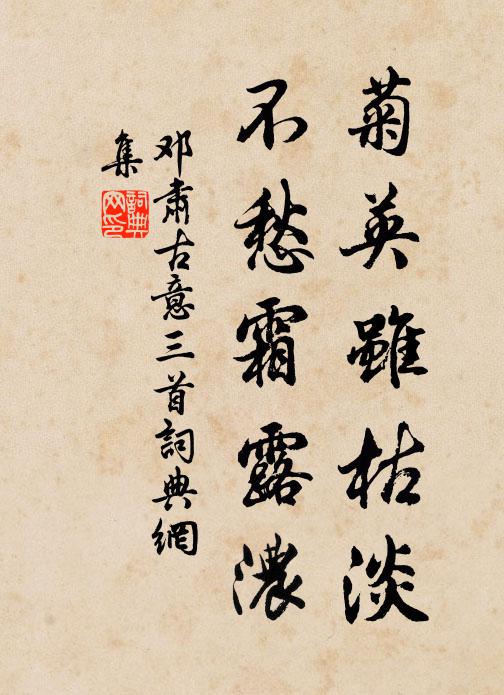 菊英雖枯淡
不愁霜露濃
邓肅古意三首詞典網
集
詞典
网印